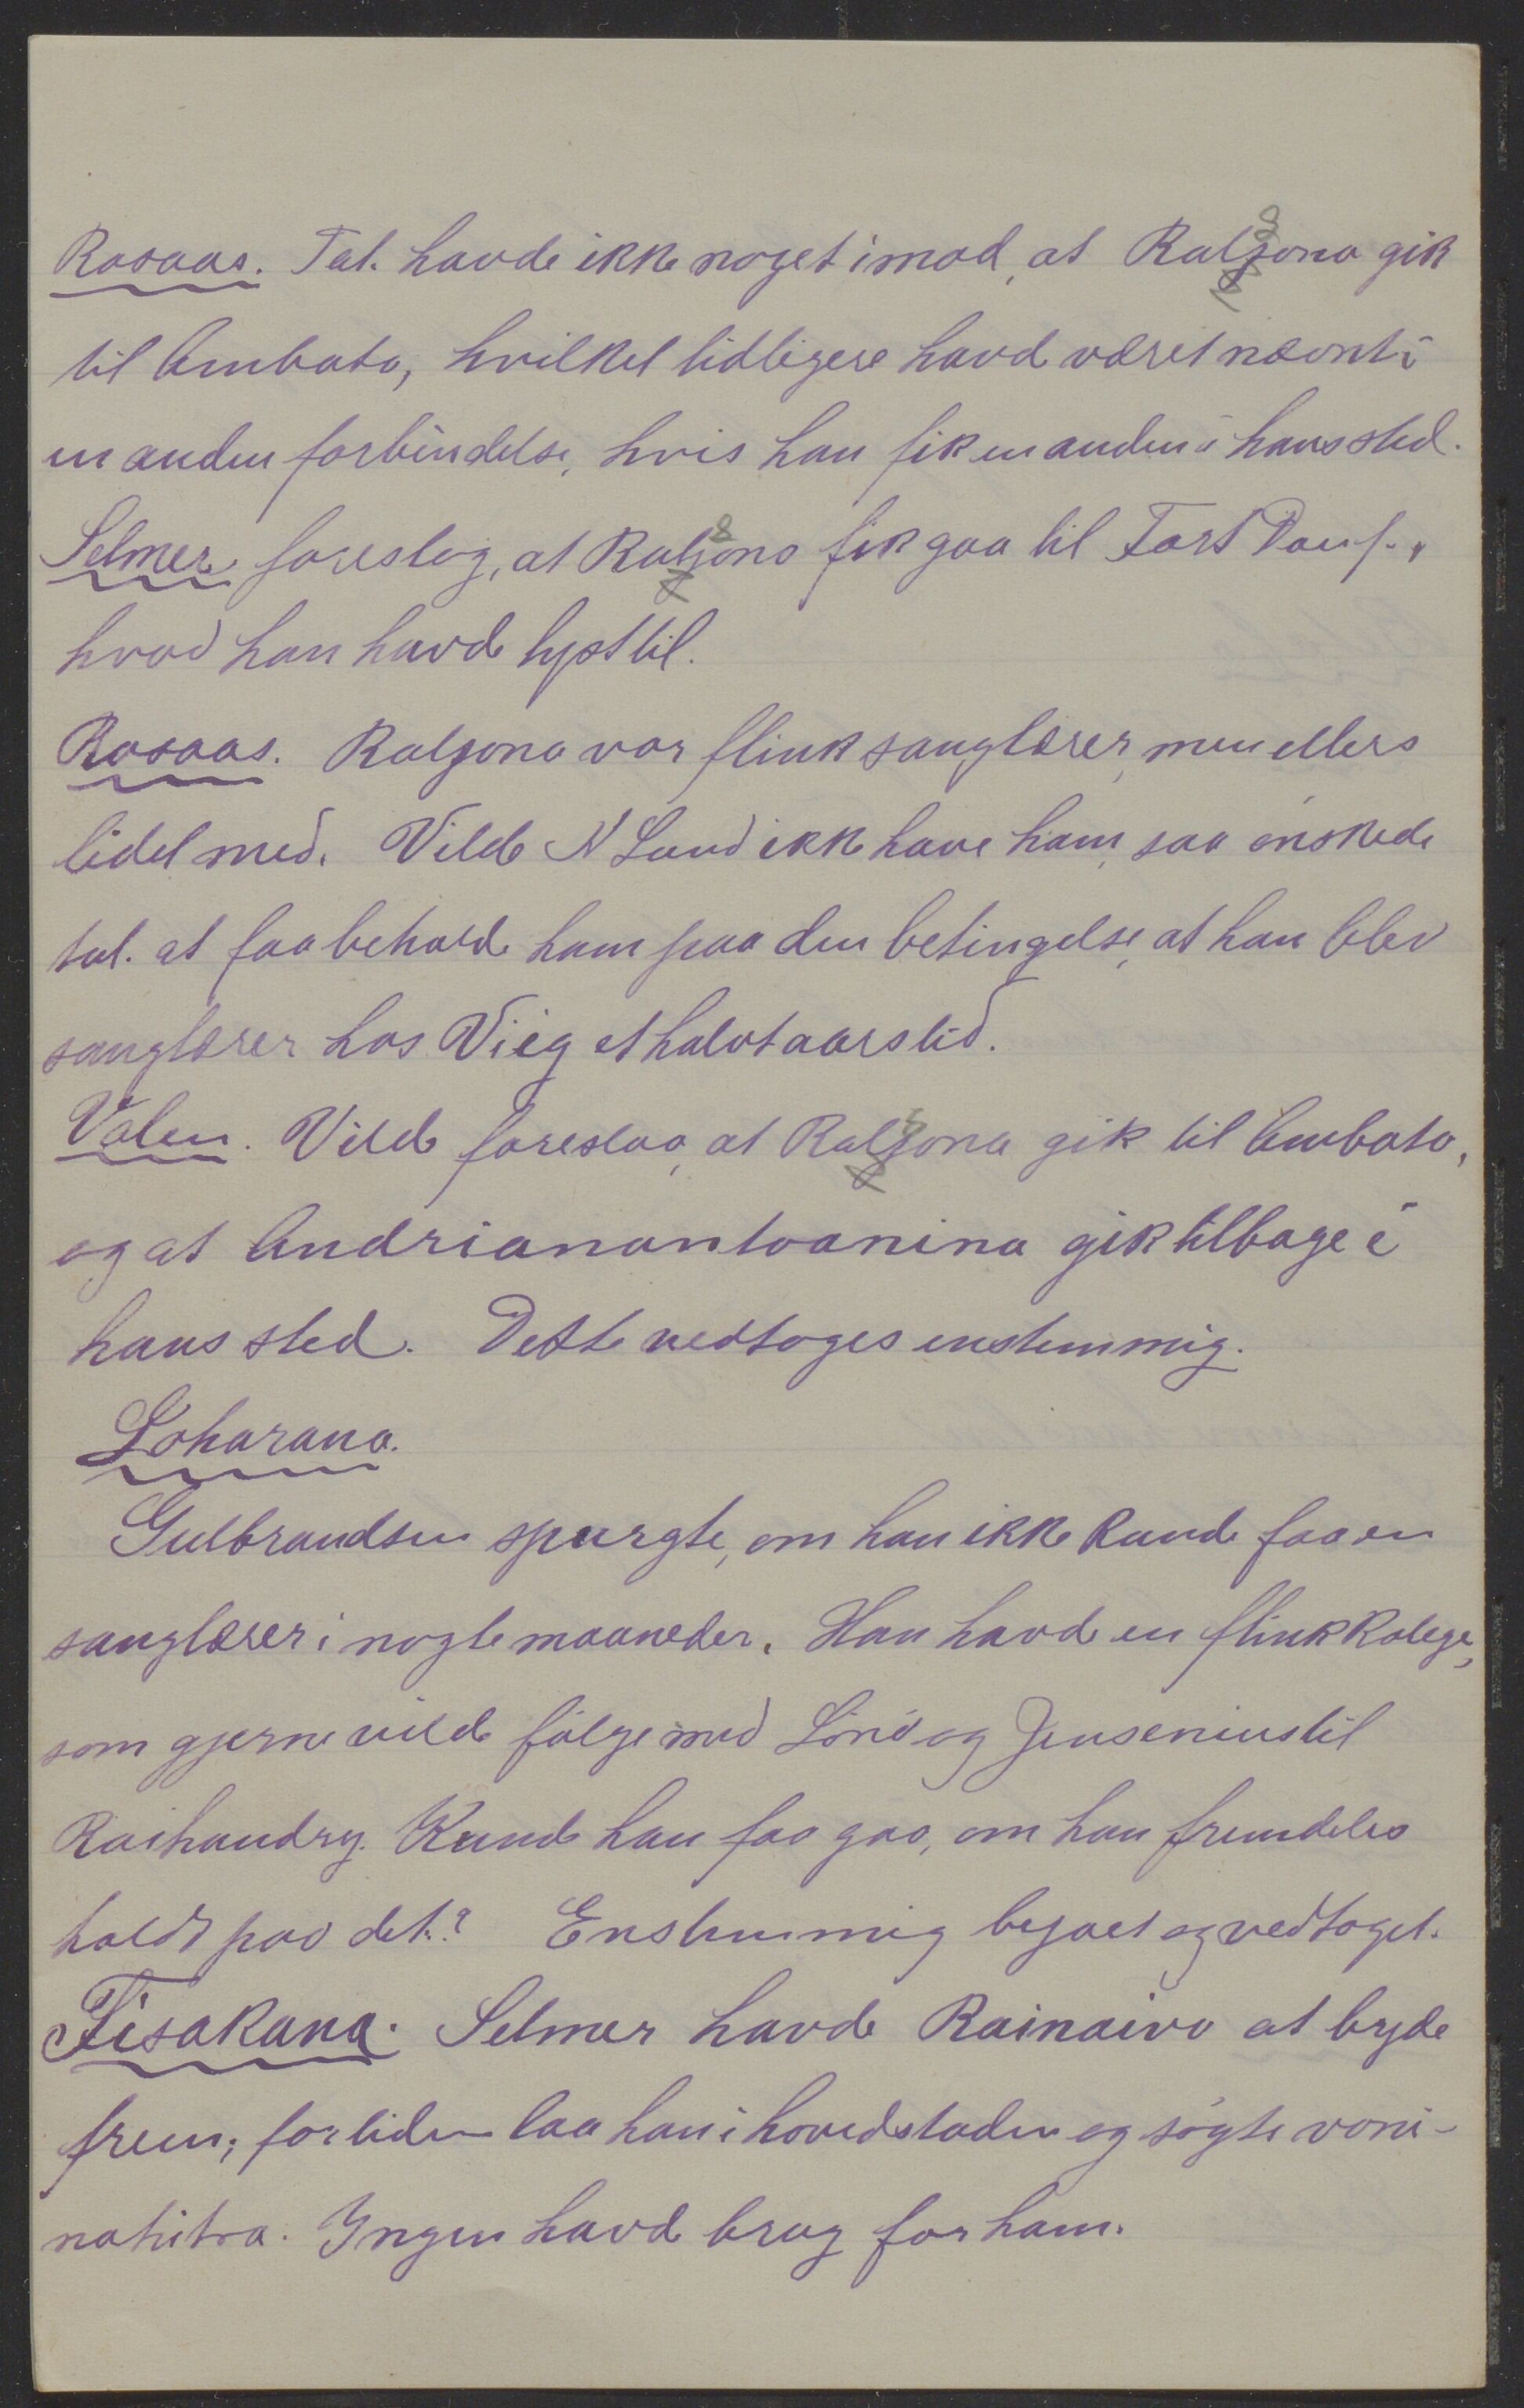 Rosaas. Tal. havde ikke noget imod, at Raljaona gik
til Ambato, hvilket tidligere havd været nævnt i
en anden forbindelse, hvis han fik en anden i hans sted.
Selmer foreslog, at Raljaona fik gaa til Fort Dauf.,
hvad han havde lyst til.
Rosaas. Raljaona var flink sanglærer, men ellers
lidet med. Vilde N Lund ikke have ham, saa ønskede
tal. at faa beholde ham paa den betingelse, at han blev
sanglærer hos Vieg et halvt aars tid.
Valen. Vilde foreslaa, at Raljaona gik til Ambato,
og at Andrianantoanina gik tilbage i
hans sted. Dette vedtoges enstemmig.
Loharano.
Gulbrandsen spurgte, om han ikke kunde faa en
sanglærer i nogle maaneder. Han havde en flink kolega,
som gjerne vilde følge med Lønø og Jensenius til
Kunde han faa gaa, om han fremdeles
holdt paa det.? Enstemmig bejaet og vedtaget.
Fisakana. Selmer havde Rainaivo at byde
frem; for tiden laa han i hovedstaden og søgte voni-
nahitra. Ingen havde brug for ham.